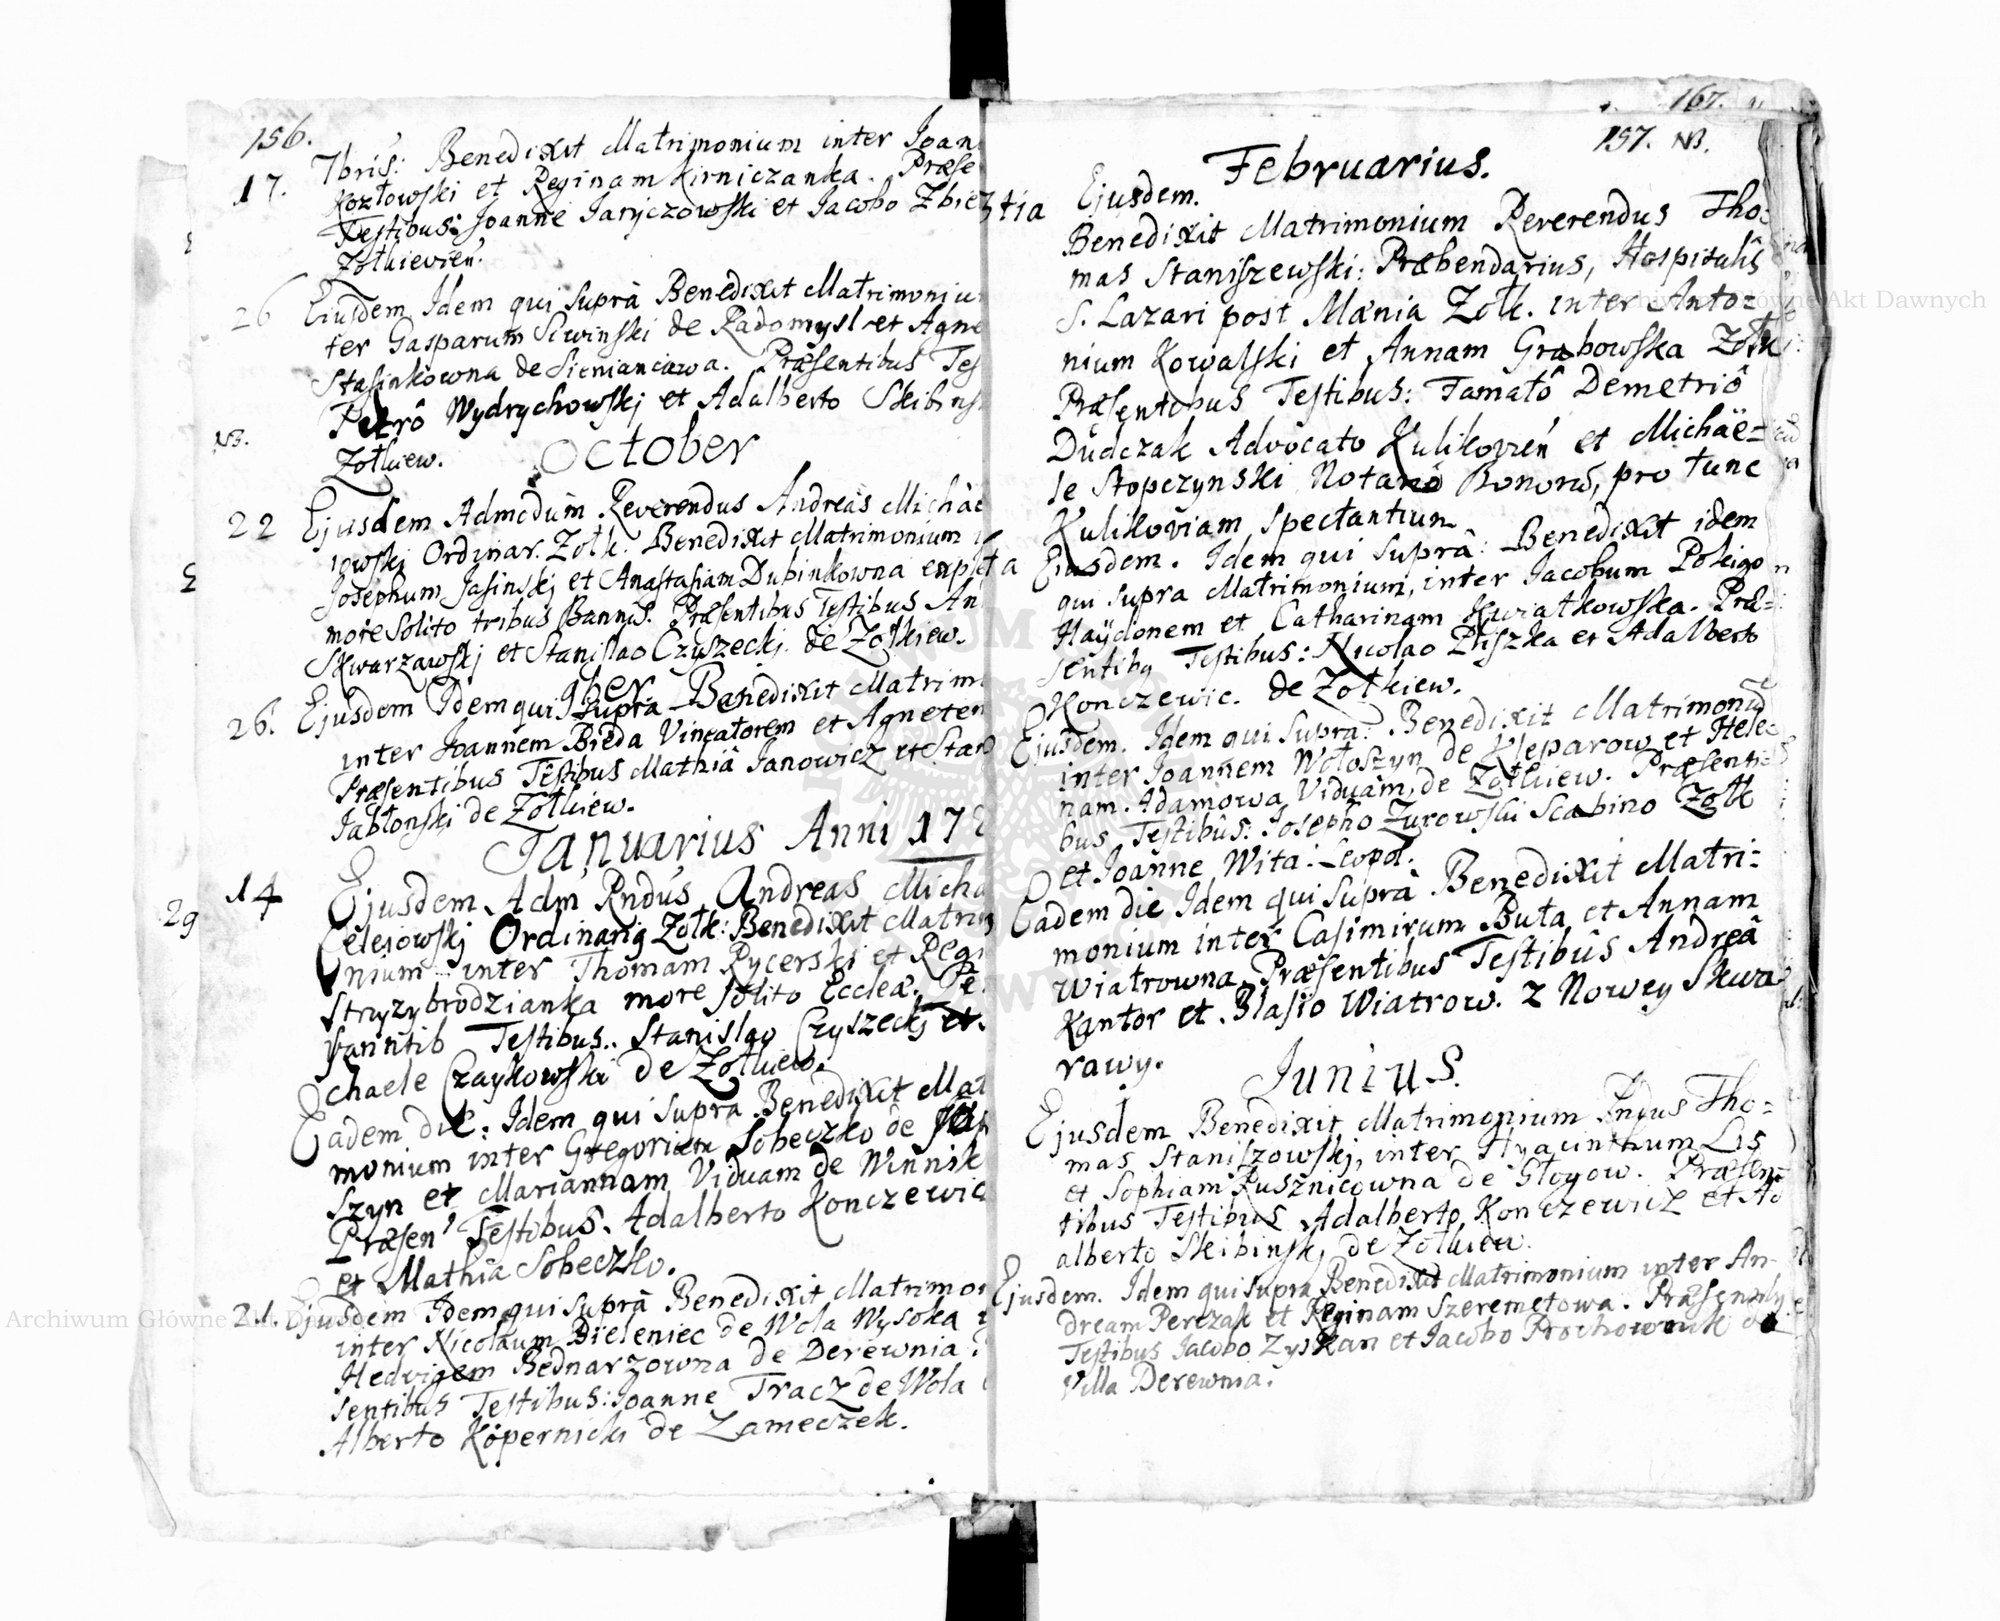 156.
17. 7bris: Benedixit Matrimonium inter Joan
Kozłowski et Reginam Kirniczanka. Præse
Testibus: Joanne Jaryczowski et Jacobo Zbie
Zołkievien.
26 Eiusdem Idem qui suprà Benedixit Matrimoniu
ter Gasparum Siwinski de Radomysl et Agne
Stasinkowna de Sieniancawa. Præsentibus Tes
Petrô Wydrychowskj et Adalberto Skibins
NB. Zołkiew.
October
22 Ejusdem Admodum Reverendus Andreas Michàe
lowskj Ordinar. Zołk. Benedixit Matrimonium
Josephum Jasinskj et Anastasiam Dubinkowna
more Solito tribus Bannis. Præsentibus Testibus An
Skwarzawskj et Stanislao Czyszeckj de Zołkiew.
9ber
26. Ejusdem Idem qui supra Benedixit Matrim
inter Joannem Bieda Vineatorem et Agnetem
Præsentibus Testibus Mathiâ Janowicz et Stan
Jabłonski de Zołkiew.
Januarius Anni 17
14 Ejusdem Adm Rndus Andreas Micha
29 Celejowskj Ordinarig Zołk: Benedixit Matrim
nium inter Thomam Rycerski et Regi
Strzyzybrodzianka more solito Eccleæ.
Testibus. Stanislao Czyszeckj et
chaele Czaykowski de Zołkiew.
Eadem die: Idem qui supra Benedixit Mat
monium inter Gregorium Sobeczko de
szyn et Mariannam Viduam de Winnik
Præsen' Testibus. Adalberto Konczewic
et Mathia Sobeczko.
21. Ejusdem Idem qui suprà Benedixit Matrimon
inter Nicolaum Bieleniec de Wola Wysoka
Hedvigem Bednarzowna de Derewnia
sentibus Testibus: Joanne Tracz de Wola
Alberto Kopernicki de Zameczek.
167.
157. NB.
Februarius.
Ejusdem.
Benedixit Matrimonium Reverendus Tho=
mas Staniszewski: Præbendarius, Hospitalis
S. Lazari post Mænia Zołk. inter Anto=
nium Kowalski et Annam Grabowska Zołk
Præsentibus Testibus: Famatô Demetriô
Dudczak Advocato Kulikovień et Michäe=
le Stopczynski Notariô Bonorũ, pro tunc
Kulikoviam spectantium.
Eiusdem. Idem qui suprà: Benedixit idem
qui supra Matrimonium, inter Jacobum Poligo
Haydonem et Catharinam Kwiatkowska. Præ=
sentibg Testibus: Nicolao Pliszka et Adalberto
Konczewic. de Zołkiew.
Ejusdem. Idem qui supra: Benedixit Matrimoniũ
inter Joannem Wołoszyn de Kleparow et Hele=
nam. Adamowa Viduam, de Zołkiew. Præsenti
bus Testibus: Josepho Zurowski Scabino Zołk
et Joanne Wita: Leopol.
Eadem die Idem qui suprà Benedixit Matri=
monium inter Casimirum Buta et Annam
Wiatrowna. Præsentibus Testibus Andreâ
Kantor et. Blasio Wiatrow. z Nowey Skwa
rawy.
Junius.
Ejusdem Benedixit Matrimonium Rndus Tho=
mas Staniszowskj, inter Hyacinthum Lis
et Sophiam Rusznicowna de Głogow. Præsen=
tibus Testibus Adalberto Konczewicz et Ad
alberto Skibinskj de Zołkiew.
Ejusdem. Idem qui supra Benedixit Matrimonium inter An-
dream Perczak et Reginam Szeremetowa.
Testibus Jacobo Zyskan et Jacobo Prochownik de
Villa Derewnia.
Archiwum Główne Akt Dawnych